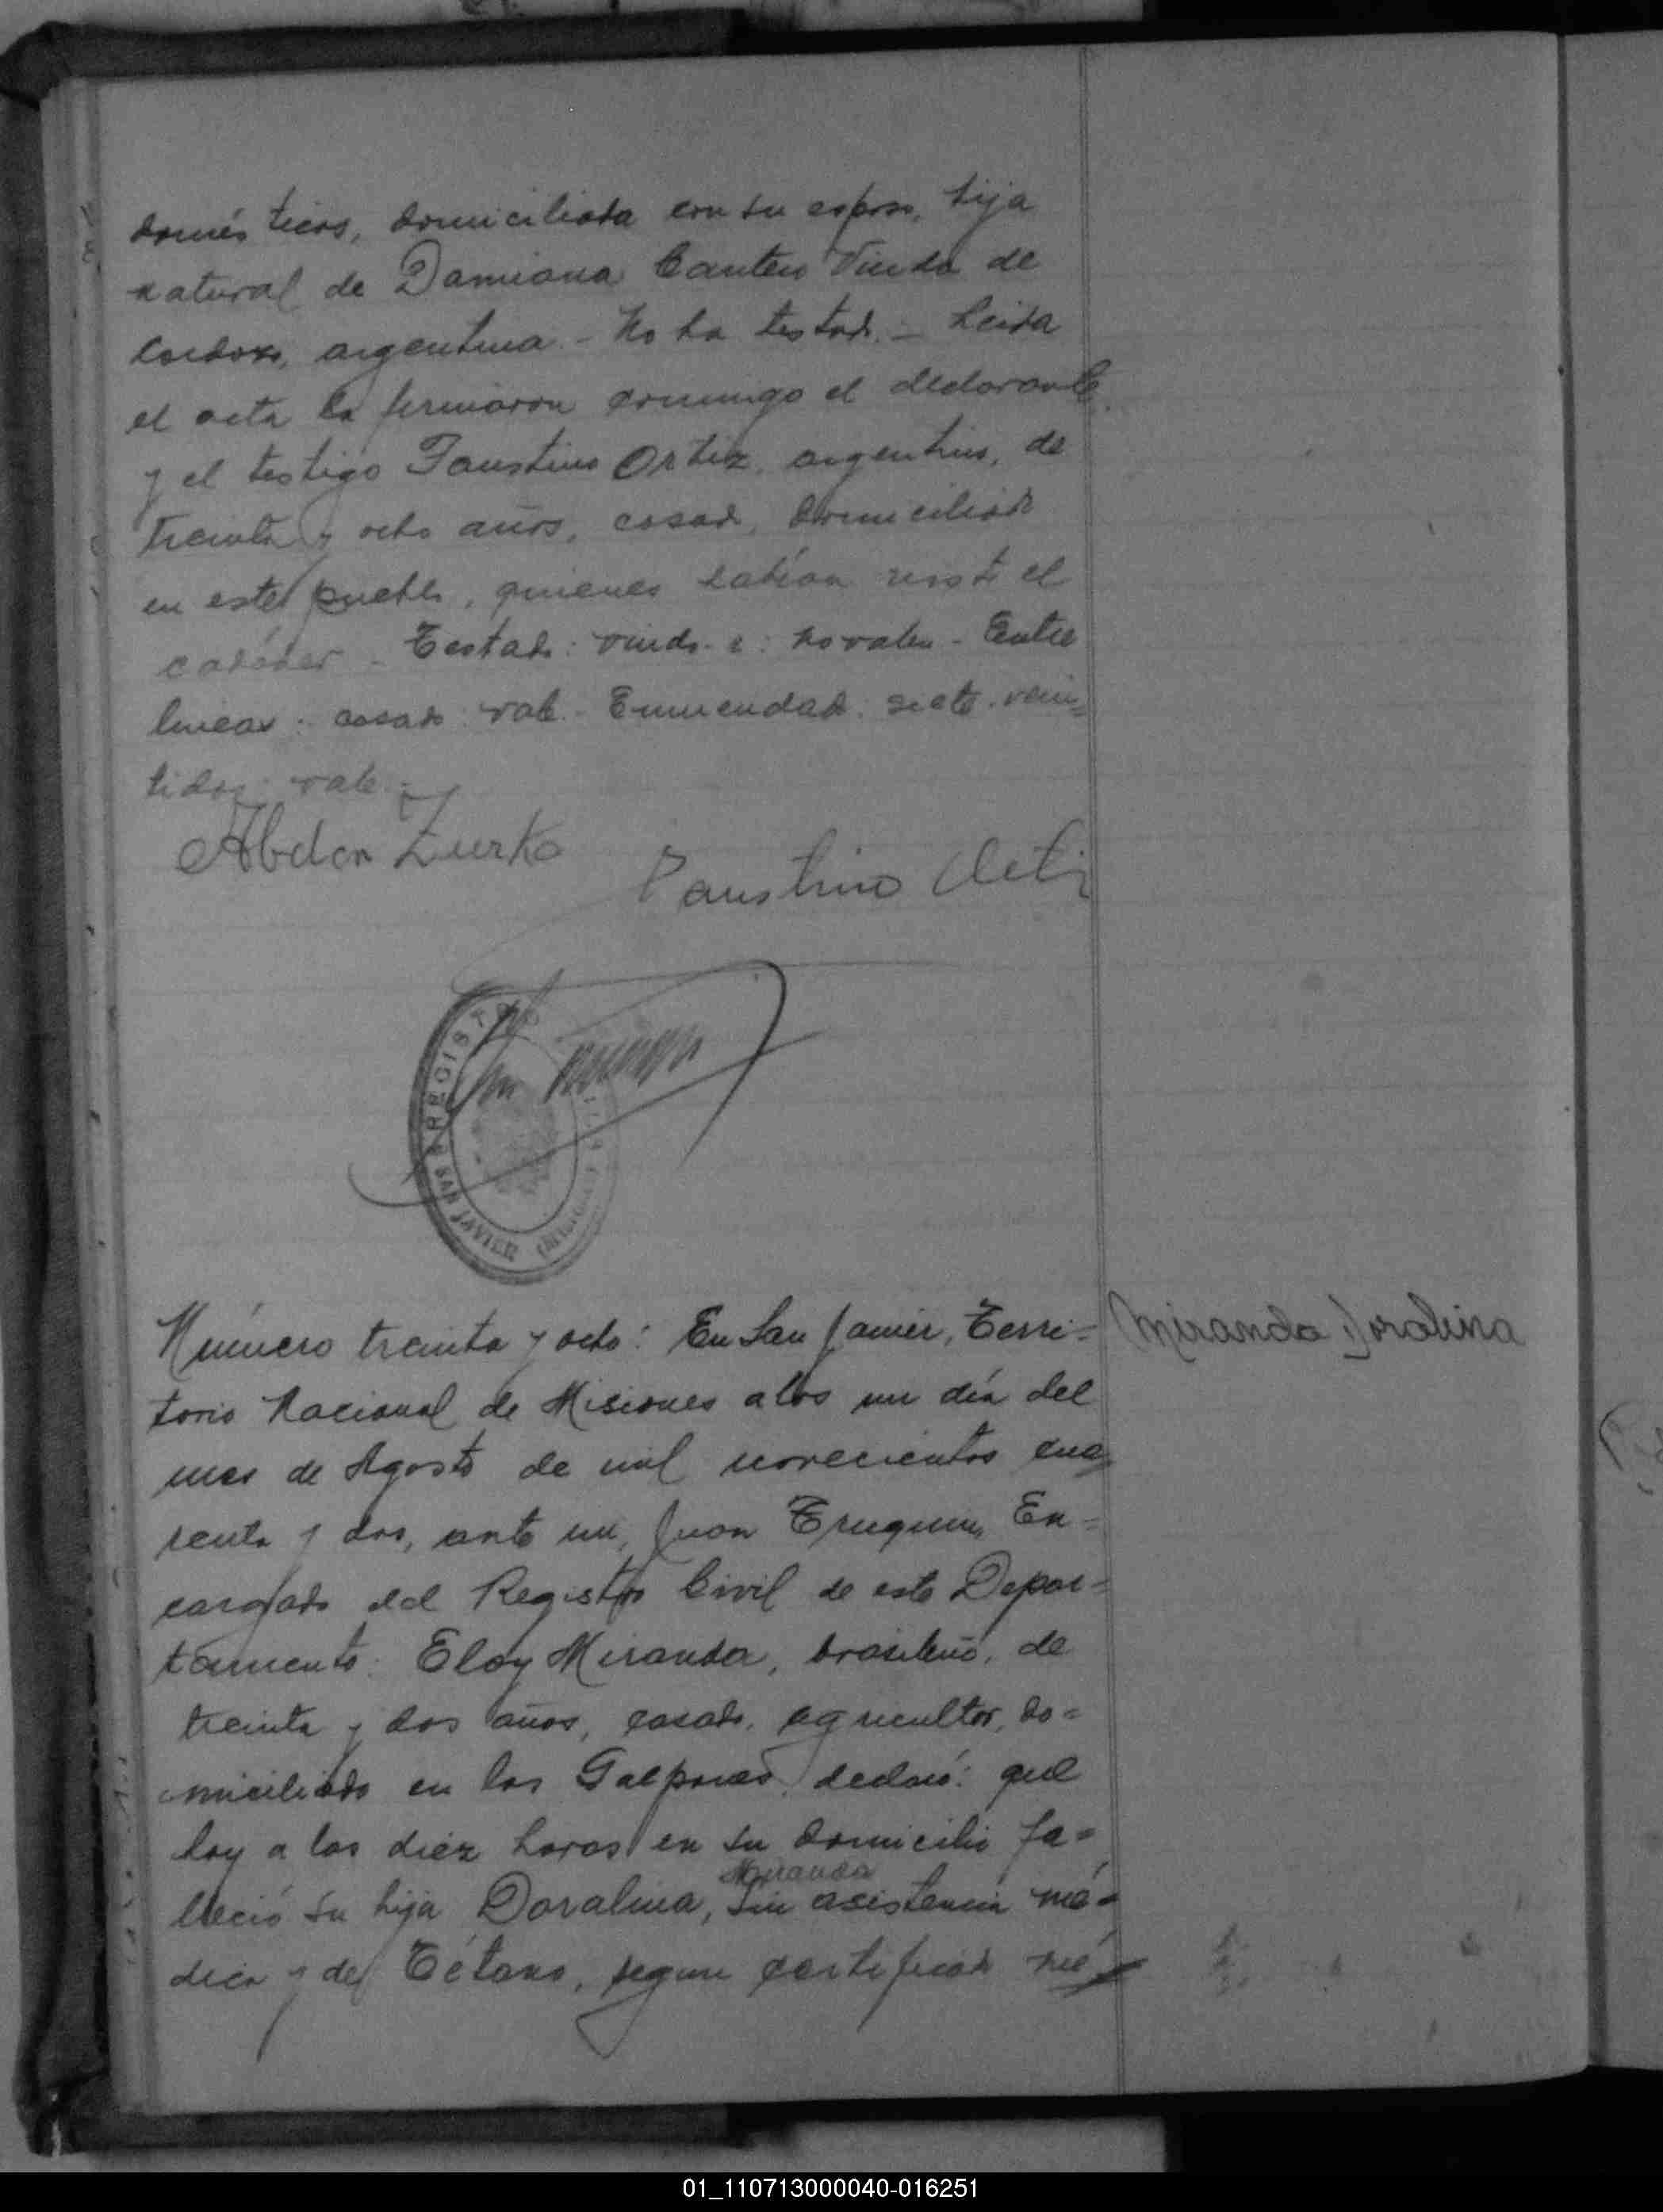 domésticos, domiciliada con su esposo, hija
natural de Damiana Cantero Viuda de
Cardozo, argentina - No ha testado. - Leida
el acta la firmaron conmigo el declarante
y el testigo Faustino Ortiz, argentino, de
treinta y ocho años, casado, domiciliado
en este pueblo, quienes habían visto el
cadáver - Testado: viudo - : no valen - Entre
lineas: casado: vale. - Enmendado. siete. vein=
tidos: vale -
Abdon Zurko
Faustino
REGISTRO
SAN JAVIER (MISIONES)
Número treinta y ocho: En San Javier, Terri=
torio Nacional de Misiones a los un día del
mes de Agosto de mil novecientos cua
renta y dos, ante mi, Juan En=
cargado del Registro Civil de este Depar=
tamento: Eloy Miranda, brasileño, de
treinta y dos años, casado, agricultor, do=
miciliado en los Galpones, declaró: que
hoy a las diez horas en su domicilio fa=
lleció su hija Doralina, Miranda sin asistencia mé=
dica y de Tétano, segun certificado mé=
Miranda Doralina
01_110713000040-016251